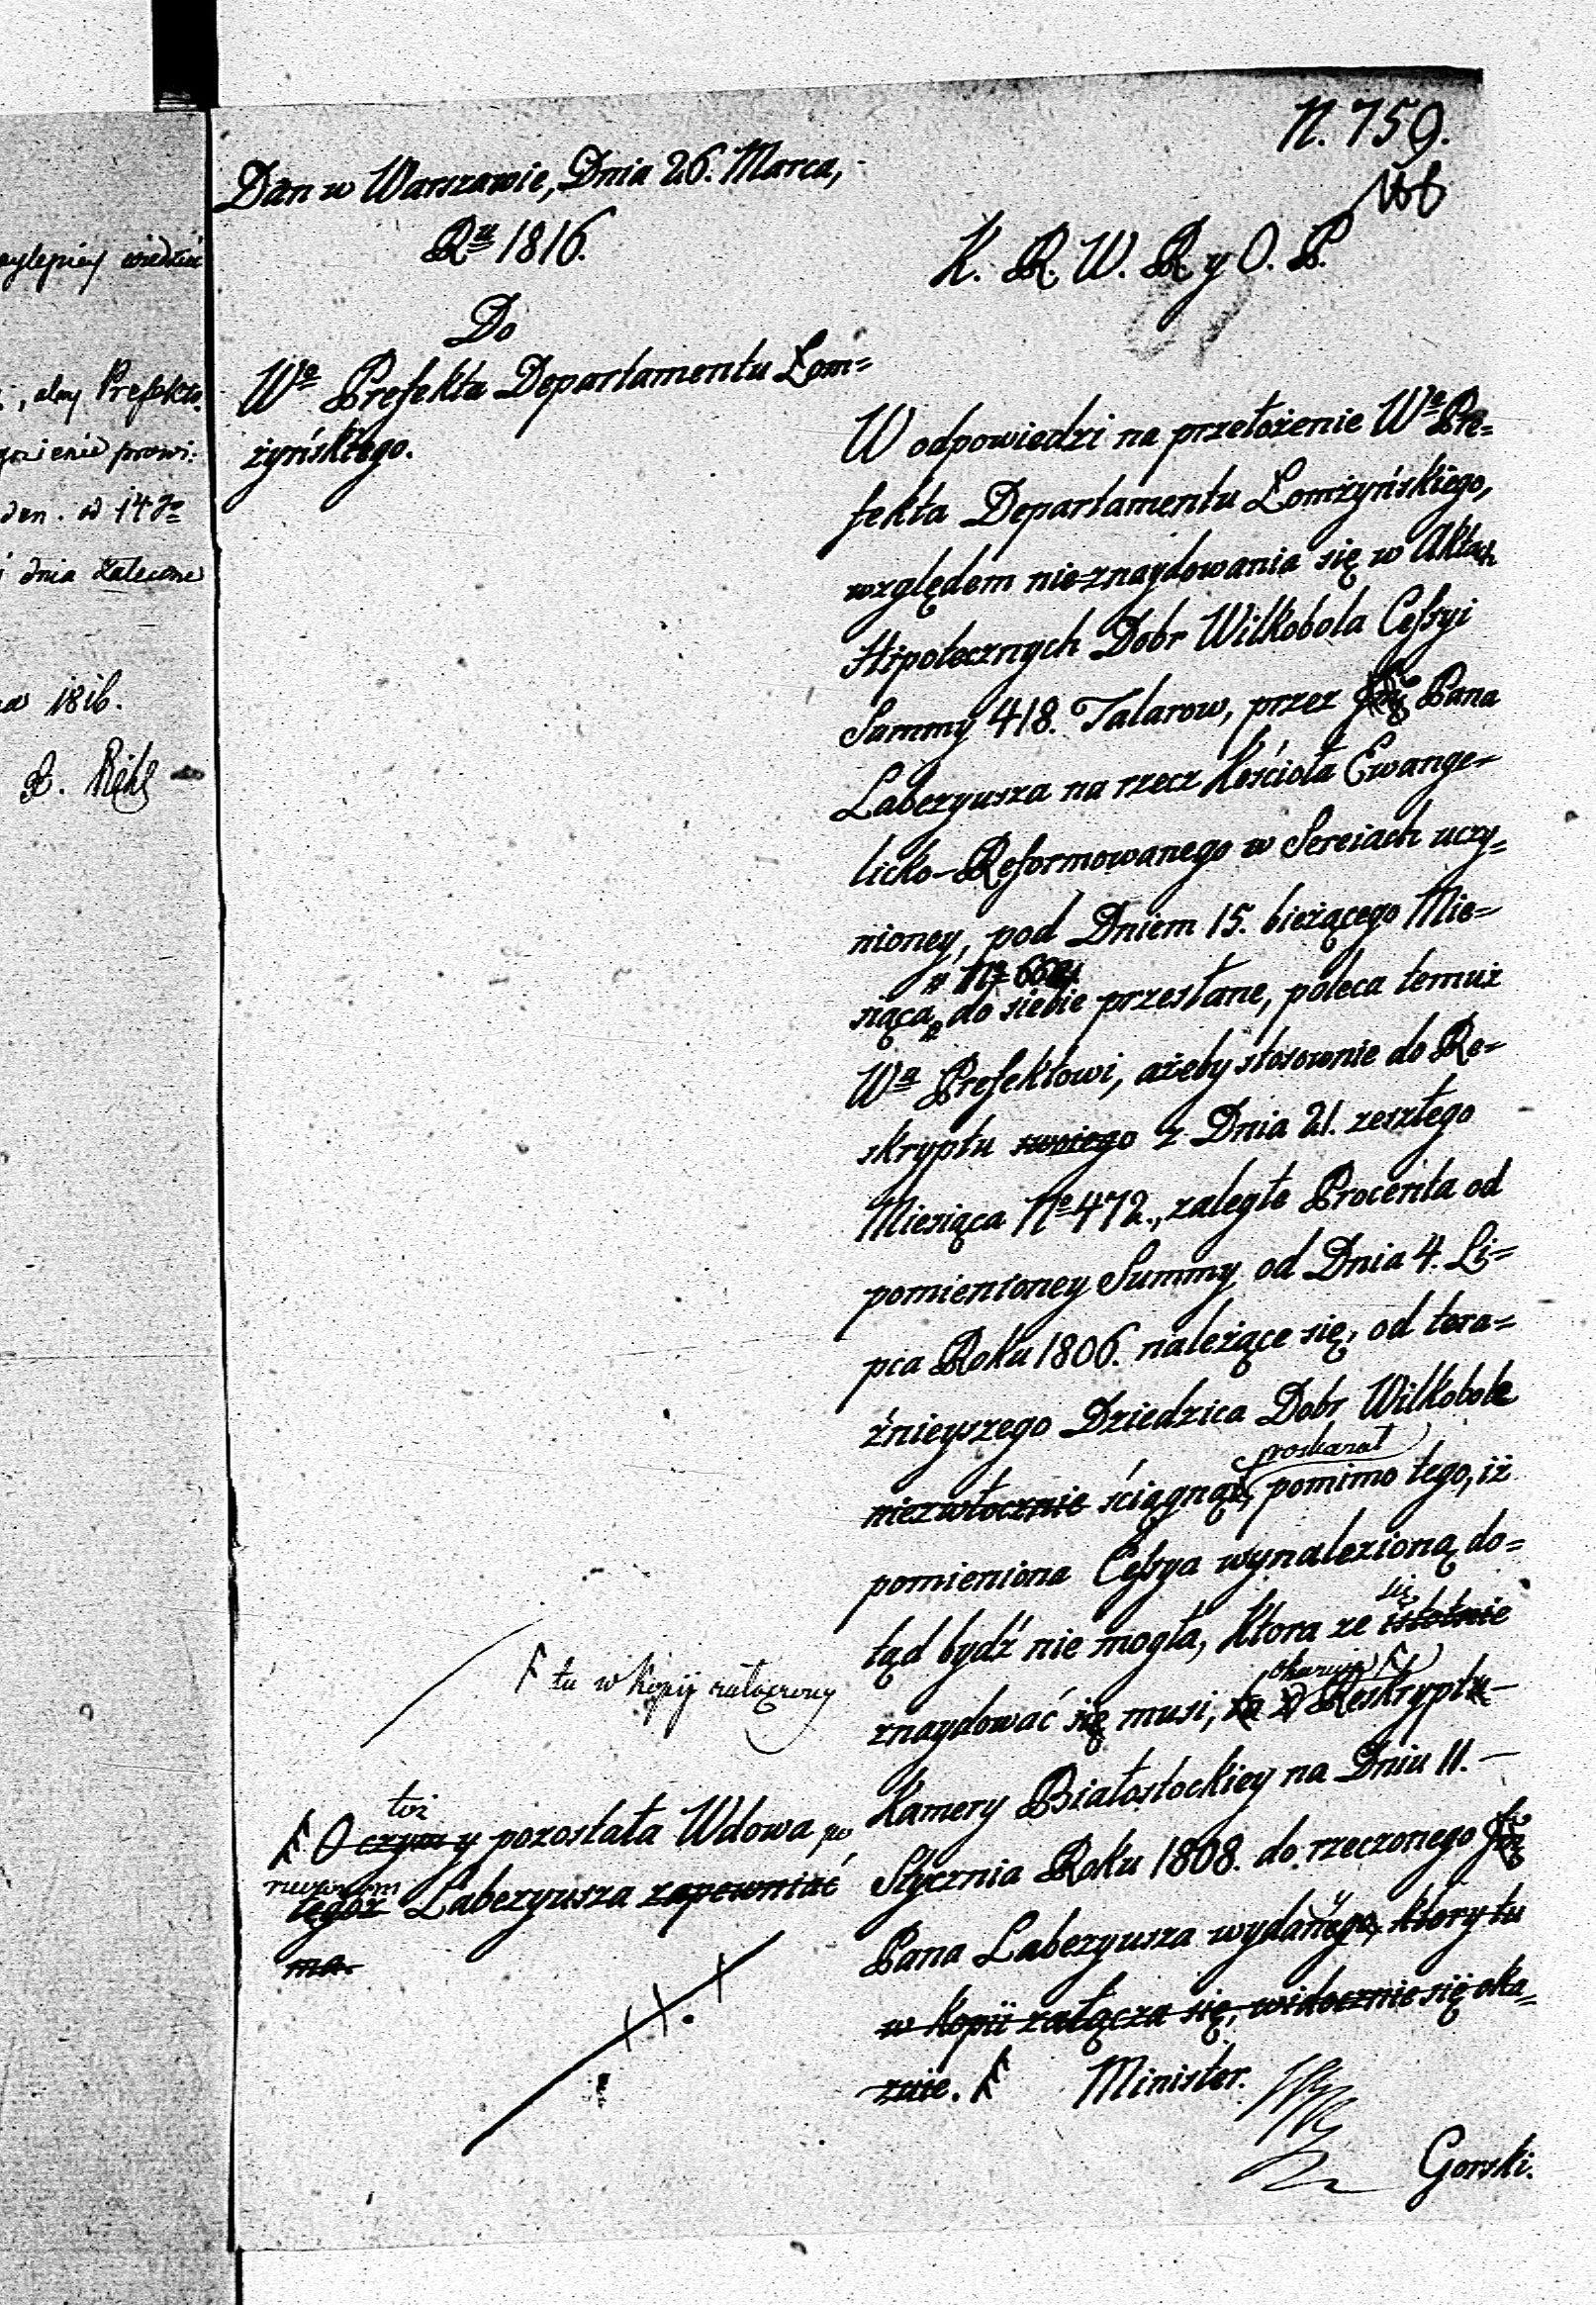 N. 759.
Dan w Warszawie, Dnia 26. Marca,
Rᵘ 1816.
K. R. W. R. y O. P.
Do
Wᵒ Prefekta Departamentu Łom=
żyńskiego.
W odpowiedzi na przełożenie Wᵒ Pre=
fekta Departamentu Łomżyńskiego,
względem nieznaydowania się w Aktach
Hipotecznych Dobr Wilkobola Cessyi
Summy 418. Talarow, przez Pana
Laberyusza na rzecz Kościoła Ewange=
licko-Reformowanego w Sereiach uczy=
nioney, pod Dniem 15. bieżącego Mie=
siąca do siebie przesłane, poleca temuż
Wᵘ Prefektowi, ażeby stosownie do Re=
skryptu swoiego z Dnia 21. zeszłego
Miesiąca Nᵒ 472., zaległe Procenta od
pomienioney Summy od Dnia 4. Li=
pca Roku 1806. należące się, od tera=
źnieyszego Dziedzica Dobr Wilkobole
niezwłocznie ściągnął, pomimo tego, iż
pomieniona Cessya wynalezioną do=
tąd bydź nie mogła, ktora ze się istotnie
znaydować się musi, Reskryptu
Kamery Białostockiey na Dniu 11.
Stycznia Roku 1808. do rzeczonego
Pana Laberyusza wydanego, ktory tu
w kopii załącza się, widocznie się oka=
zuie. Minister.
Gorski.
tu w kopij załączony
toż
O czym y pozostała Wdowa po
tegoż Laberyusza zapewniać
ma.
naylepiey wiedzieć
, aby Prefekt
prowi:
dnia zalecone
1816.